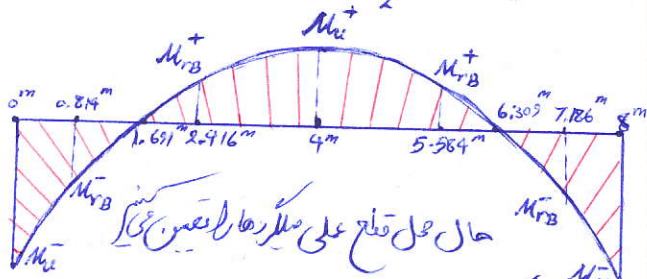 Mu⁺
MrB⁺ MrB⁺
0ᵐ 0.814ᵐ 1.691ᵐ 2.416ᵐ 4ᵐ 5.584ᵐ 6.309ᵐ 7.186ᵐ 8ᵐ
MrB⁻ MrB⁻
حال محل قطع عملی میلگردها را تعیین می‌کنیم
Mu⁻ Mu⁻